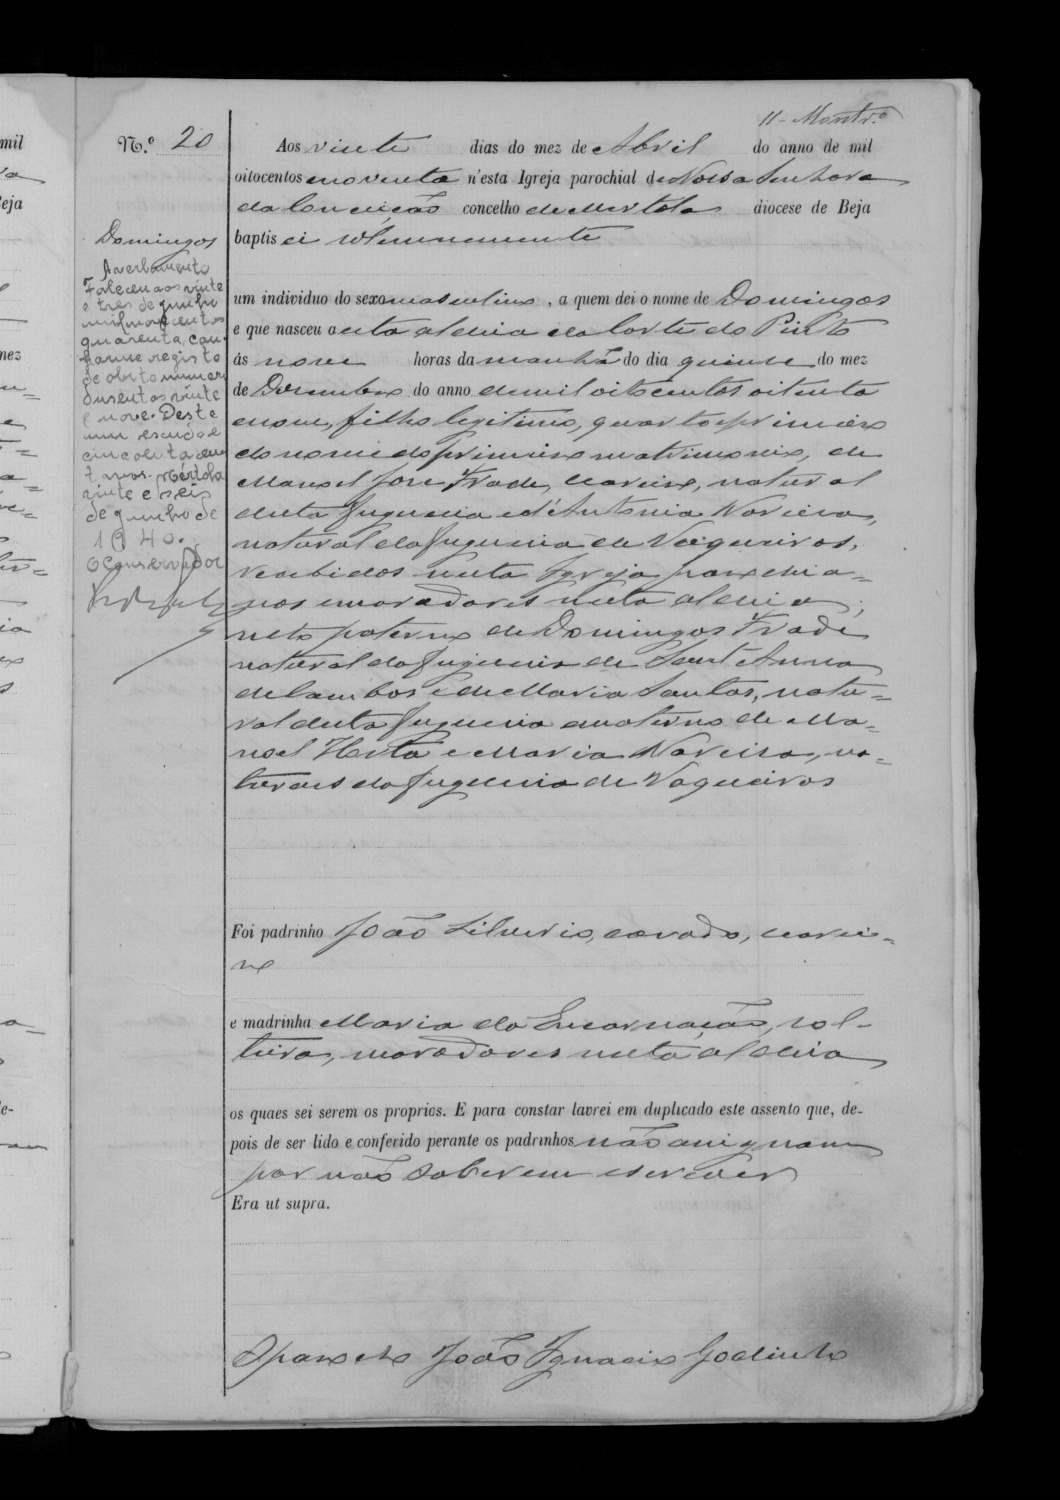 11 - Montr.º
N.º 20
Aos vinte dias do mez de Abril do anno de mil
oitocentos e noventa n'esta Igreja parochial de Nossa Senhora
da Conceição concelho de Mertola diocese de Beja
baptisei solemnemente
um individuo do sexo masculino, a quem dei o nome de Domingos
e que nasceu nesta aldeia da Corte do Pinto
ás nove horas da manhã do dia quinze do mez
de Dezembro do anno de mil oitocentos oitenta
e nove, filho legitimo, quarto primeiro
do nome do primeiro matrimonio, de
Manoel José Frade, natural
desta freguezia e d'Antonia
natural da freguezia de Vaqueiros,
recebidos nesta Igreja, parochia-
nos e moradores nesta aldeia,
neto paterno de Domingos Frade
natural da freguezia de Sant'Anna
de Cambas e de Maria Santos, natu-
ral desta freguezia e materno de Ma-
noel Horta e Maria na-
turaes da freguezia de Vaqueiros
Foi padrinho João Silverio, casado,
e madrinha Maria da Encarnação, sol-
teira, moradores nesta aldeia
os quaes sei serem os proprios. E para constar lavrei em duplicado este assento que, de-
pois de ser lido e conferido perante os padrinhos não assignam
por não saberem escrever
Era ut supra.
O parocho João Ignacio Godinho
Domingos
Averbamento
Faleceu aos vinte
e tres de junho
mil novecentos
quarenta, con-
forme registo
de obito numero
dusentos vinte
e nove. Deste
um escudo e
cincoenta cen-
tavos. Mértola
vinte e seis
de junho de
1940.
O Conservador
mil
eja
mez